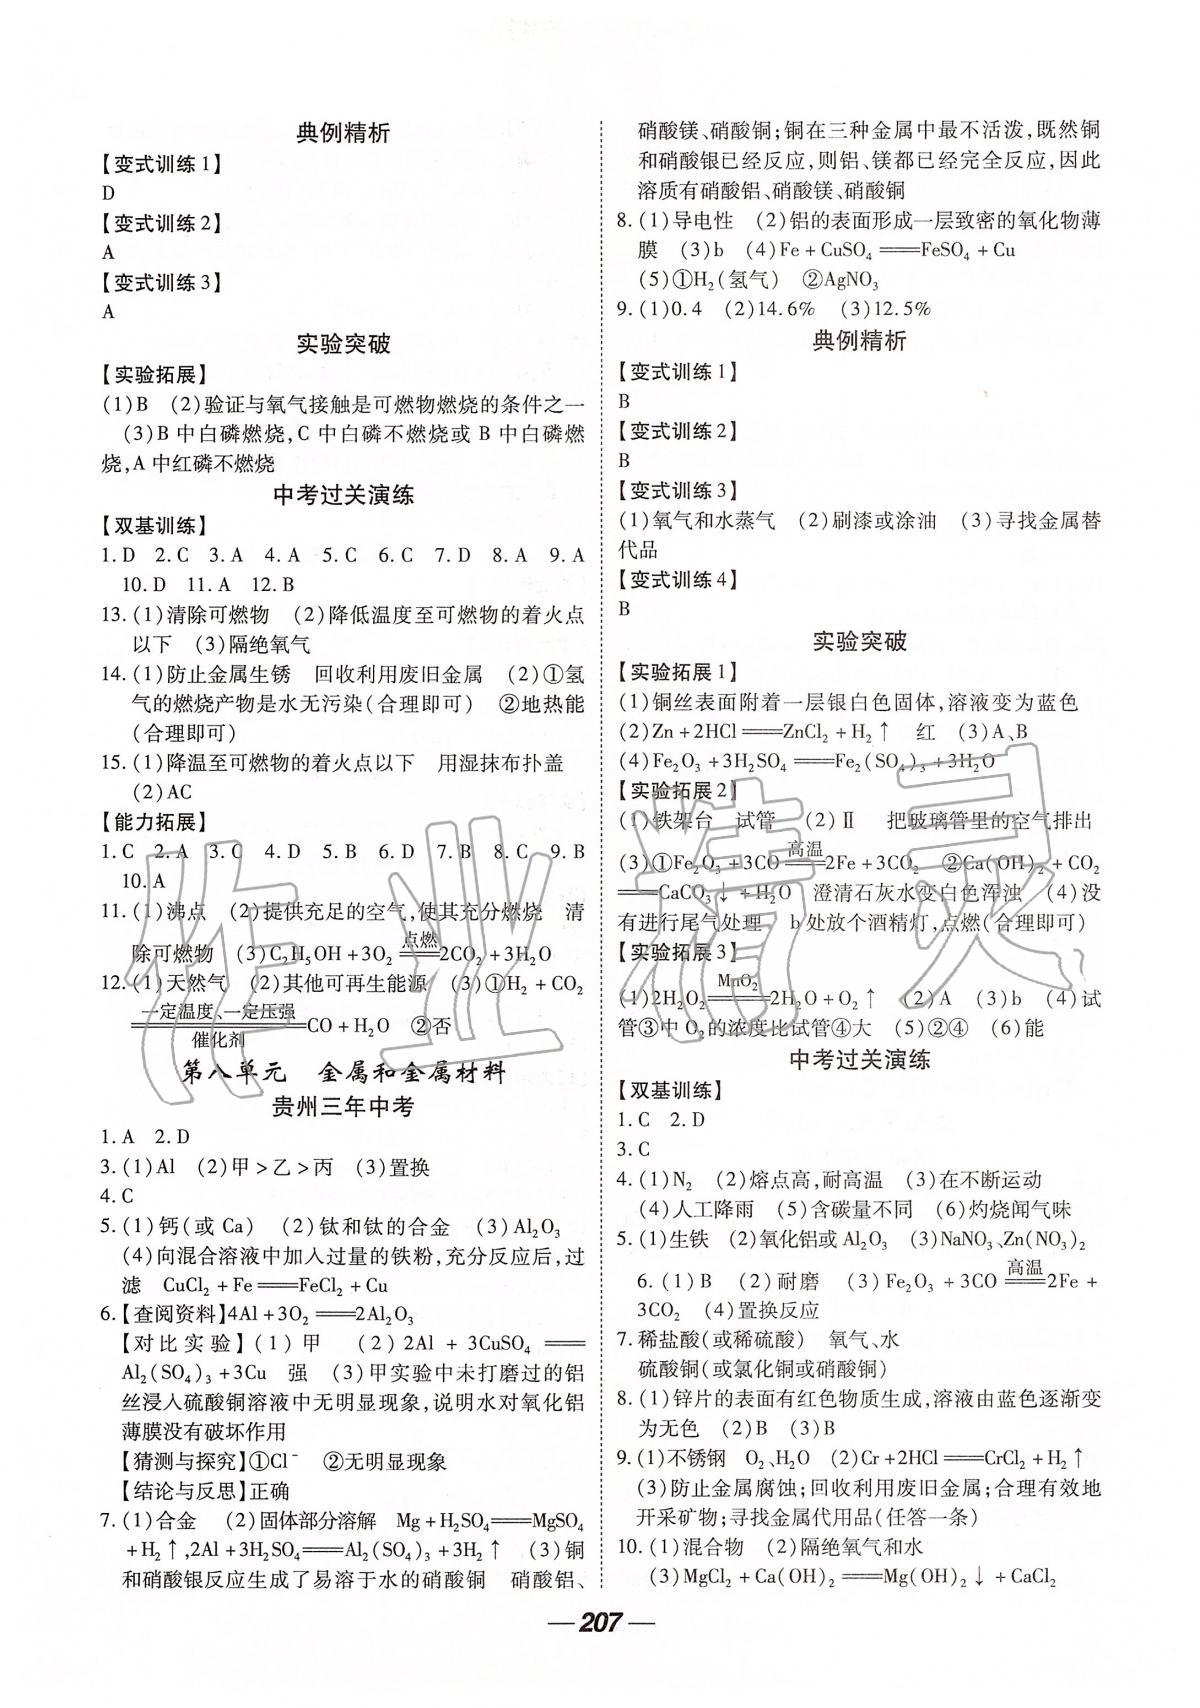 典例精析
【变式训练1】
D
【变式训练2】
A
【变式训练3】
A
实验突破
【实验拓展】
(1)B  (2)验证与氧气接触是可燃物燃烧的条件之一
(3)B中白磷燃烧,C中白磷不燃烧或B中白磷燃
烧,A中红磷不燃烧
中考过关演练
【双基训练】
1. D  2. C  3. A  4. A  5. C  6. C  7. D  8. A  9. A
10. D  11. A  12. B
13. (1)清除可燃物  (2)降低温度至可燃物的着火点
以下  (3)隔绝氧气
14. (1)防止金属生锈  回收利用废旧金属  (2)①氢
气的燃烧产物是水无污染(合理即可)  ②地热能
(合理即可)
15. (1)降温至可燃物的着火点以下  用湿抹布扑盖
(2)AC
【能力拓展】
1. C  2. A  3. C  4. D  5. B  6. D  7. B  8. C  9. B
10. A
11. (1)沸点  (2)提供充足的空气,使其充分燃烧  清
除可燃物  (3)C₂H₅OH+3O₂ 点燃══ 2CO₂+3H₂O
12. (1)天然气  (2)其他可再生能源  (3)①H₂+CO₂
一定温度、一定压强
══CO+H₂O  ②否
催化剂
第八单元  金属和金属材料
贵州三年中考
1. A  2. D
3. (1)Al  (2)甲>乙>丙  (3)置换
4. C
5. (1)钙(或Ca)  (2)钛和钛的合金  (3)Al₂O₃
(4)向混合溶液中加入过量的铁粉,充分反应后,过
滤  CuCl₂+Fe══FeCl₂+Cu
6.【查阅资料】4Al+3O₂══2Al₂O₃
【对比实验】(1)甲  (2)2Al+3CuSO₄══
Al₂(SO₄)₃+3Cu  强  (3)甲实验中未打磨过的铝
丝浸入硫酸铜溶液中无明显现象,说明水对氧化铝
薄膜没有破坏作用
【猜测与探究】①Cl⁻  ②无明显现象
【结论与反思】正确
7. (1)合金  (2)固体部分溶解  Mg+H₂SO₄══MgSO₄
+H₂↑,2Al+3H₂SO₄══Al₂(SO₄)₃+3H₂↑  (3)铜
和硝酸银反应生成了易溶于水的硝酸铜  硝酸铝、
硝酸镁、硝酸铜;铜在三种金属中最不活泼,既然铜
和硝酸银已经反应,则铝、镁都已经完全反应,因此
溶质有硝酸铝、硝酸镁、硝酸铜
8. (1)导电性  (2)铝的表面形成一层致密的氧化物薄
膜  (3)b  (4)Fe+CuSO₄══FeSO₄+Cu
(5)①H₂(氢气)  ②AgNO₃
9. (1)0.4  (2)14.6%  (3)12.5%
典例精析
【变式训练1】
B
【变式训练2】
B
【变式训练3】
(1)氧气和水蒸气  (2)刷漆或涂油  (3)寻找金属替
代品
【变式训练4】
B
实验突破
【实验拓展1】
(1)铜丝表面附着一层银白色固体,溶液变为蓝色
(2)Zn+2HCl══ZnCl₂+H₂↑  红  (3)A、B
(4)Fe₂O₃+3H₂SO₄══Fe₂(SO₄)₃+3H₂O
【实验拓展2】
(1)铁架台  试管  (2)Ⅱ  把玻璃管里的空气排出
(3)①Fe₂O₃+3CO 高温══ 2Fe+3CO₂  ②Ca(OH)₂+CO₂
══CaCO₃↓+H₂O  澄清石灰水变白色浑浊  (4)没
有进行尾气处理  b处放个酒精灯,点燃(合理即可)
【实验拓展3】
(1)2H₂O₂ MnO₂══ 2H₂O+O₂↑  (2)A  (3)b  (4)试
管③中O₂的浓度比试管④大  (5)②④  (6)能
中考过关演练
【双基训练】
1. C  2. D
3. C
4. (1)N₂  (2)熔点高,耐高温  (3)在不断运动
(4)人工降雨  (5)含碳量不同  (6)灼烧闻气味
5. (1)生铁  (2)氧化铝或Al₂O₃  (3)NaNO₃、Zn(NO₃)₂
6. (1)B  (2)耐磨  (3)Fe₂O₃+3CO 高温══ 2Fe+
3CO₂  (4)置换反应
7. 稀盐酸(或稀硫酸)  氧气、水
硫酸铜(或氯化铜或硝酸铜)
8. (1)锌片的表面有红色物质生成,溶液由蓝色逐渐变
为无色  (2)B  (3)B
9. (1)不锈钢  O₂、H₂O  (2)Cr+2HCl══CrCl₂+H₂↑
(3)防止金属腐蚀;回收利用废旧金属;合理有效地
开采矿物;寻找金属代用品(任答一条)
10. (1)混合物  (2)隔绝氧气和水
(3)MgCl₂+Ca(OH)₂══Mg(OH)₂↓+CaCl₂
— 207 —
作业精灵